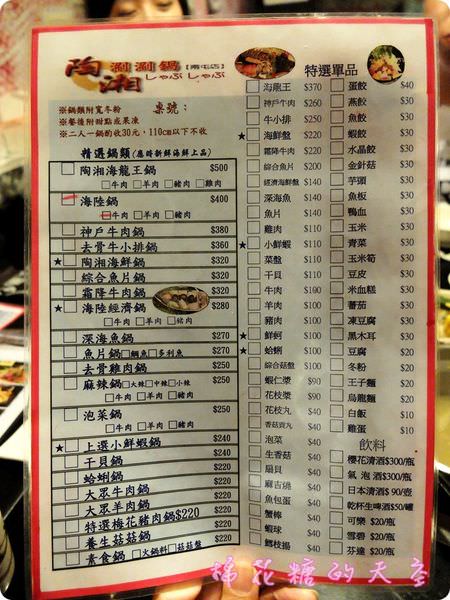 陶湘 涮涮鍋【南屯店】
しゃぶ しゃぶ
※鍋類附寬冬粉
桌號：
※餐後附甜點或果凍
※二人一鍋酌收30元，110cm以下不收
精選鍋類(應時新鮮海鮮上品)
陶湘海龍王鍋 $500
□牛肉 □羊肉 □豬肉 □雞肉
海陸鍋 $400
□牛肉 □羊肉 □豬肉
神戶牛肉鍋 $380
去骨牛小排鍋 $360
★陶湘海鮮鍋 $320
綜合魚片鍋 $320
霜降牛肉鍋 $320
★海陸經濟鍋 $280
□牛肉 □羊肉 □豬肉
深海魚鍋 $270
魚片鍋□鯛魚□多利魚 $270
去骨雞肉鍋 $250
麻辣鍋□大辣□中辣□小辣 $250
□牛肉 □羊肉 □豬肉
泡菜鍋 $250
□牛肉 □羊肉 □豬肉
★上選小鮮蝦鍋 $240
干貝鍋 $220
蛤蜊鍋 $220
大眾牛肉鍋 $220
大眾羊肉鍋 $220
特選梅花豬肉鍋$220
養生菇菇鍋 $220
素食鍋□火鍋料□菇菇盤 $220
特選單品
海龍王 $370
神戶牛肉 $240
牛小排 $250
★海鮮盤 $220
霜降牛肉 $220
綜合魚片 $200
經濟海鮮盤 $140
深海魚 $140
魚片 $140
雞肉 $110
★小鮮蝦 $110
菜盤 $110
干貝 $110
牛肉 $100
羊肉 $100
豬肉 $100
★鮮蚵 $100
★蛤蜊 $100
綜合菇盤 $100
蝦仁漿 $90
花枝漿 $90
花枝丸 $40
香菇貢丸 $40
泡菜 $40
生香菇 $40
扇貝 $40
麻吉燒 $40
魚包蛋 $40
蟹棒 $40
蝦球 $40
鱈枝揚 $40
蛋餃 $40
燕餃 $30
魚餃 $30
蝦餃 $30
水晶餃 $30
金針菇 $30
芋頭 $30
魚板 $30
鴨血 $30
玉米 $30
青菜 $30
玉米筍 $30
豆皮 $30
米血糕 $30
蕃茄 $30
凍豆腐 $30
黑木耳 $30
豆腐 $20
冬粉 $20
王子麵 $20
烏龍麵 $20
白飯 $10
雞蛋 $10
飲料
櫻花清酒$300/瓶
氣泡酒$300/瓶
日本清酒$90/壺
乾杯生啤酒$50/罐
可樂 $20/瓶
雪碧 $20/瓶
芬達 $20/瓶
棉花糖的天空